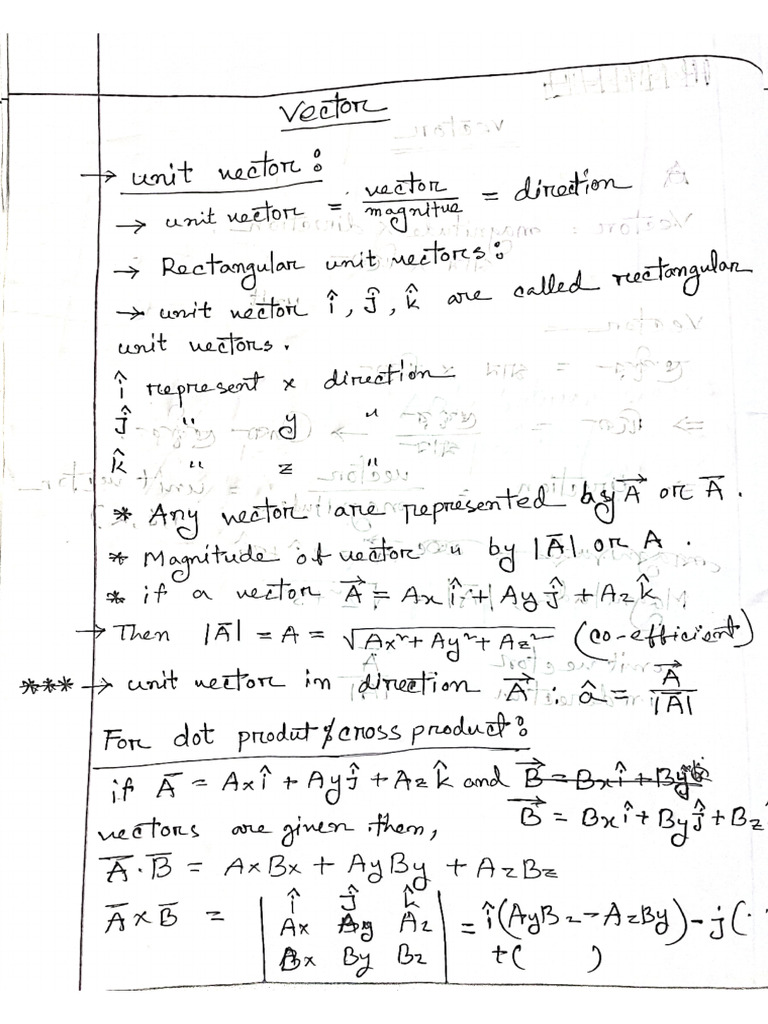 Vector
→ unit vector :
→ unit vector = vector / magnitue = direction
→ Rectangular unit vectors :
→ unit vector î, ĵ, k̂ are called rectangular
unit vectors.
î represent x direction
ĵ " y "
k̂ " z "
* Any vector are represented by A⃗ or A̅.
* Magnitude of vector " by |A̅| or A.
* if a vector A⃗ = Axî + Ayĵ + Azk̂,
→ Then |A̅| = A = √(Ax² + Ay² + Az²) (co-efficient)
*** → unit vector in direction A⃗ : â = A⃗ / |A̅|
For dot produt & cross product :
if A̅ = Axî + Ayĵ + Azk̂ and B⃗ = Bxî + Byĵ
B⃗ = Bxî + Byĵ + Bz
vectors are given then,
A̅ . B̅ = AxBx + AyBy + AzBz
A̅ x B̅ = | î ĵ k̂ | = î(AyBz - AzBy) - j(
Ax Ay Az
Bx By Bz +( )